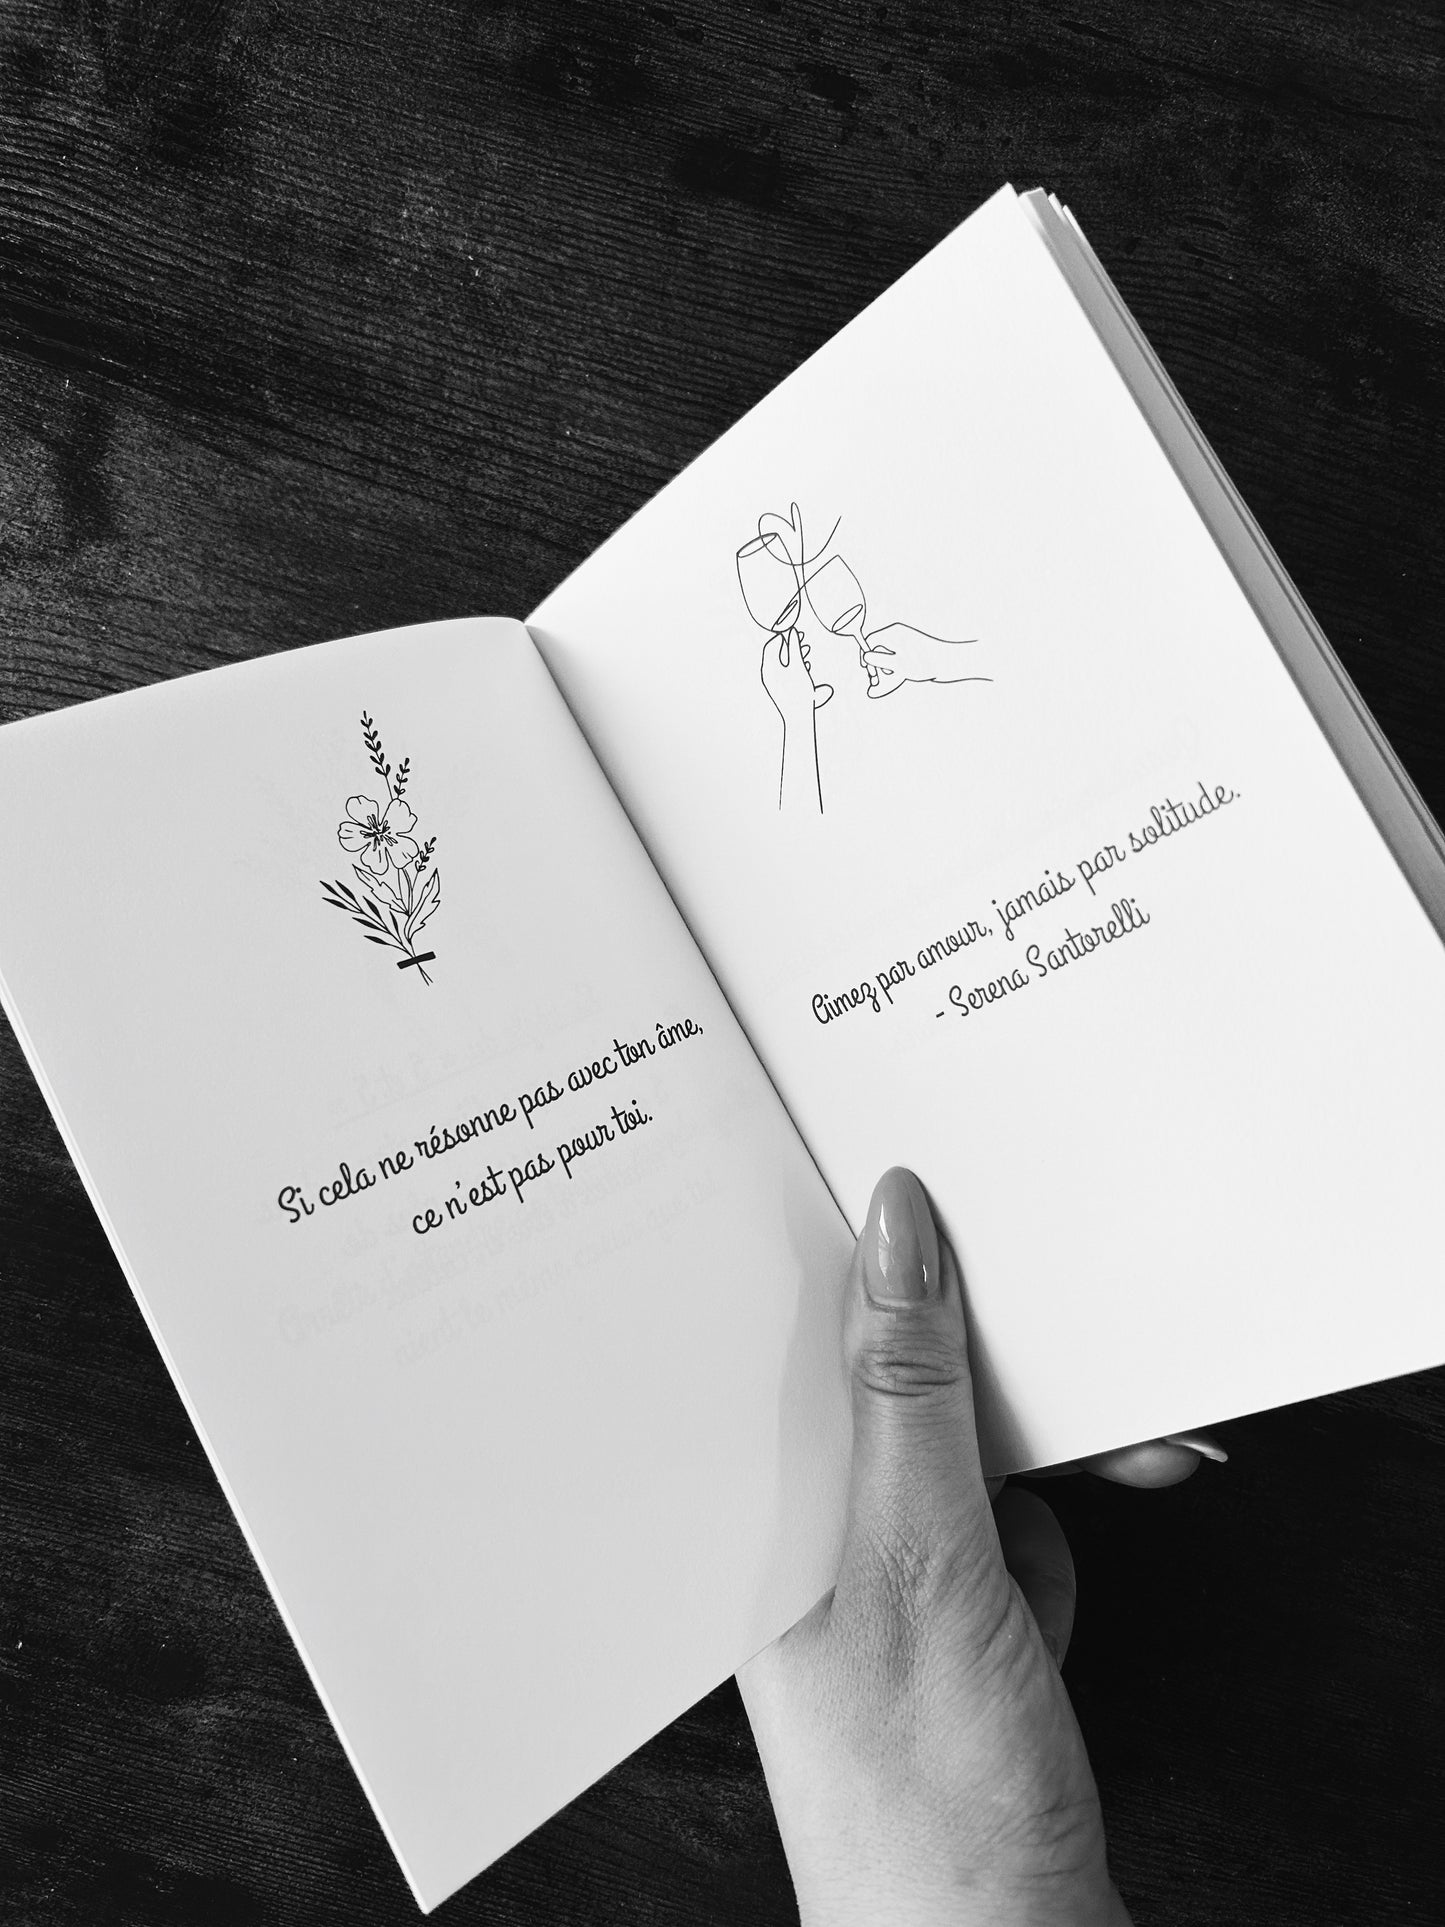 Si cela ne résonne pas avec ton âme,
ce n'est pas pour toi.
Aimez par amour, jamais par solitude.
- Serena Santorelli